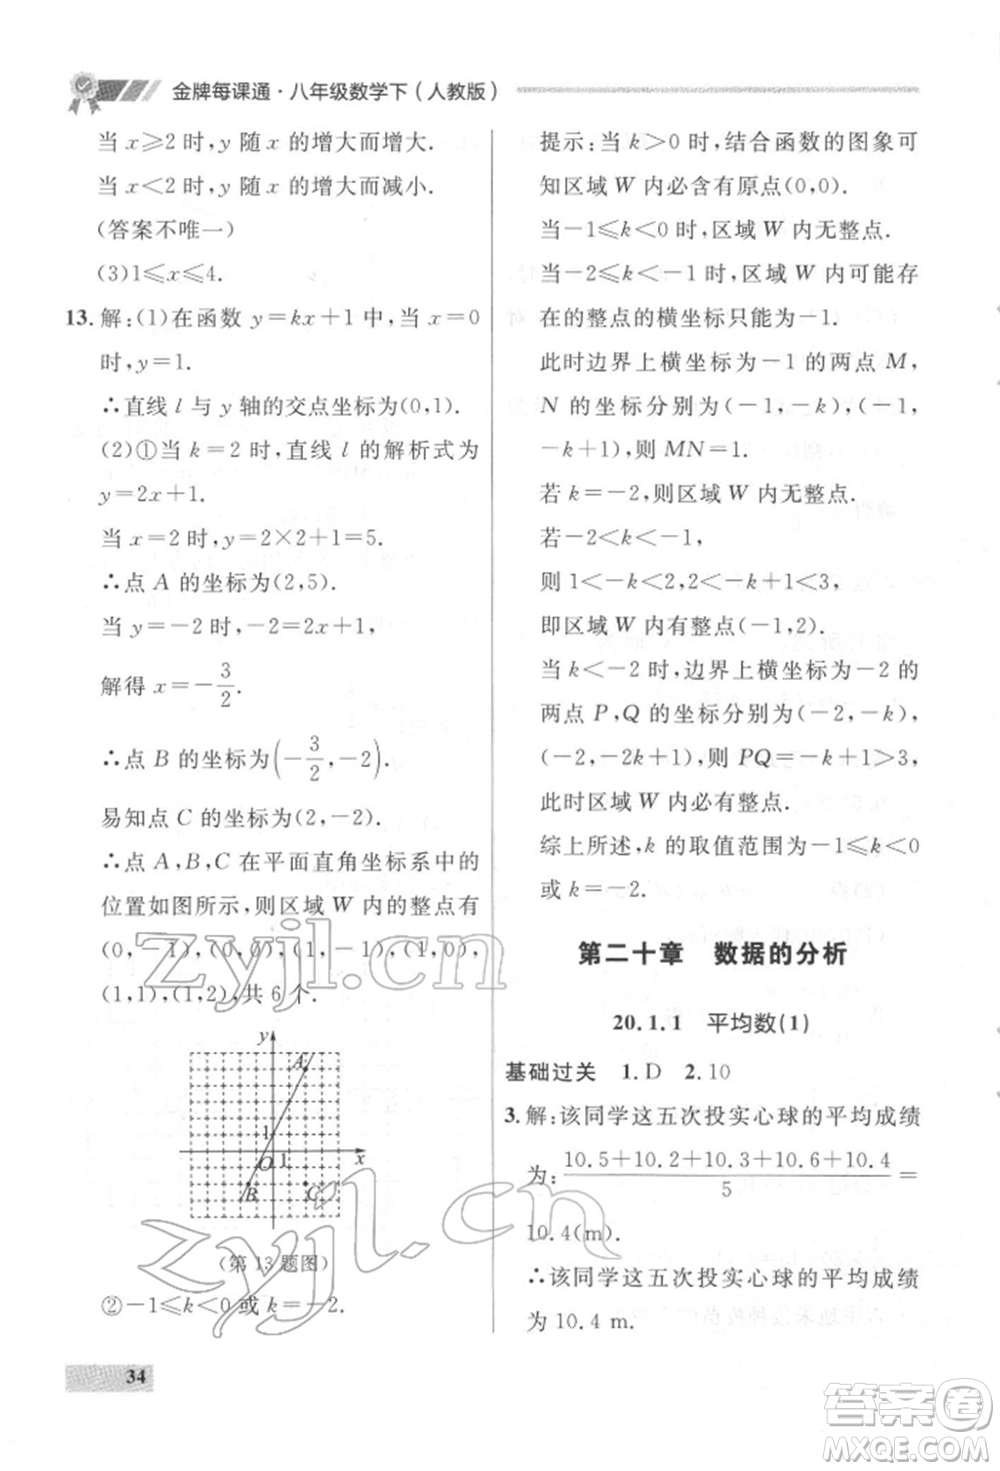 金牌每课通·八年级数学下(人教版)
当 x≥2 时,y 随 x 的增大而增大.
当 x<2 时,y 随 x 的增大而减小.
(答案不唯一)
(3)1≤x≤4.
13.解:(1)在函数 y=kx+1 中,当 x=0
时,y=1.
∴直线 l 与 y 轴的交点坐标为(0,1).
(2)①当 k=2 时,直线 l 的解析式为
y=2x+1.
当 x=2 时,y=2×2+1=5.
∴点 A 的坐标为(2,5).
当 y=-2 时,-2=2x+1,
解得 x=-3/2.
∴点 B 的坐标为(-3/2,-2).
易知点 C 的坐标为(2,-2).
∴点 A,B,C 在平面直角坐标系中的
位置如图所示,则区域 W 内的整点有
(0,-1),(0,0),(1,-1),(1,0),
(1,1),(1,2),共 6 个.
y
A
1
O 1 x
B C
(第 13 题图)
②-1≤k<0 或 k=-2.
34
提示:当 k>0 时,结合函数的图象可
知区域 W 内必含有原点(0,0).
当-1≤k<0 时,区域 W 内无整点.
当-2≤k<-1 时,区域 W 内可能存
在的整点的横坐标只能为-1.
此时边界上横坐标为-1 的两点 M,
N 的坐标分别为(-1,-k),(-1,
-k+1),则 MN=1.
若 k=-2,则区域 W 内无整点.
若-2<k<-1,
则 1<-k<2,2<-k+1<3,
即区域 W 内有整点(-1,2).
当 k<-2 时,边界上横坐标为-2 的
两点 P,Q 的坐标分别为(-2,-k),
(-2,-2k+1),则 PQ=-k+1>3,
此时区域 W 内必有整点.
综上所述,k 的取值范围为-1≤k<0
或 k=-2.
第二十章 数据的分析
20.1.1 平均数(1)
基础过关 1.D 2.10
3.解:该同学这五次投实心球的平均成绩
为:(10.5+10.2+10.3+10.6+10.4)/5=
10.4(m).
∴该同学这五次投实心球的平均成绩
为 10.4 m.
zyjl.cn
zyjl.cn
答案圈
MXQE.COM